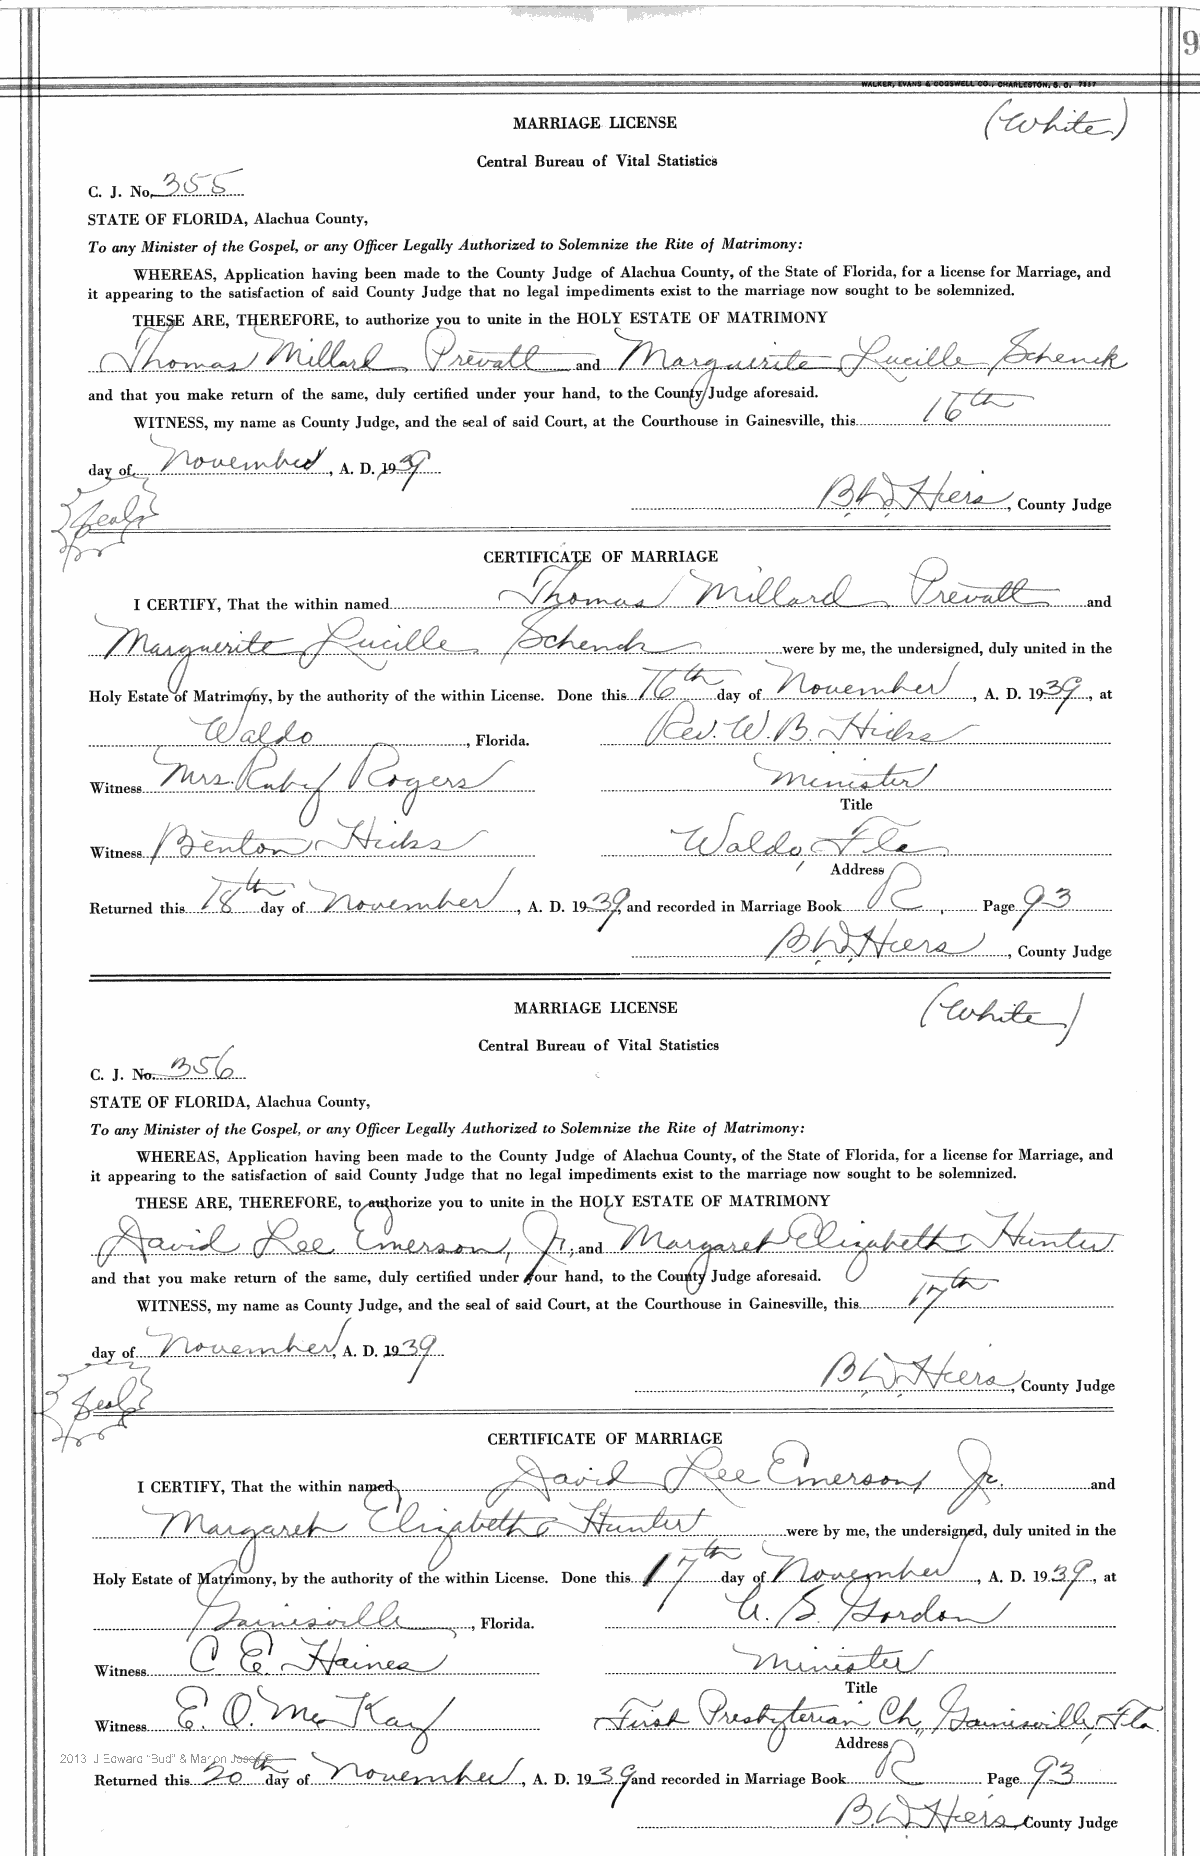 9
WALKER, EVANS & COGSWELL CO., CHARLESTON, S. C. 7357
MARRIAGE LICENSE
(White)
Central Bureau of Vital Statistics
C. J. No. 355
STATE OF FLORIDA, Alachua County,
To any Minister of the Gospel, or any Officer Legally Authorized to Solemnize the Rite of Matrimony:
WHEREAS, Application having been made to the County Judge of Alachua County, of the State of Florida, for a license for Marriage, and
it appearing to the satisfaction of said County Judge that no legal impediments exist to the marriage now sought to be solemnized.
THESE ARE, THEREFORE, to authorize you to unite in the HOLY ESTATE OF MATRIMONY
Thomas Millard Prevatt and Marguerite Lucille Schenck
and that you make return of the same, duly certified under your hand, to the County Judge aforesaid.
WITNESS, my name as County Judge, and the seal of said Court, at the Courthouse in Gainesville, this 16th
day of November, A. D. 1939
(Seal)
B. D. Hiers, County Judge
CERTIFICATE OF MARRIAGE
I CERTIFY, That the within named Thomas Millard Prevatt and
Marguerite Lucille Schenck were by me, the undersigned, duly united in the
Holy Estate of Matrimony, by the authority of the within License. Done this 16th day of November, A. D. 1939, at
Waldo, Florida. Rev. W. B. Hicks
Witness Mrs. Ruby Rogers Minister
Title
Witness Benton Hicks Waldo, Fla
Address
Returned this 18th day of November, A. D. 1939, and recorded in Marriage Book R, Page 93
B. D. Hiers, County Judge
MARRIAGE LICENSE
(White)
Central Bureau of Vital Statistics
C. J. No. 356
STATE OF FLORIDA, Alachua County,
To any Minister of the Gospel, or any Officer Legally Authorized to Solemnize the Rite of Matrimony:
WHEREAS, Application having been made to the County Judge of Alachua County, of the State of Florida, for a license for Marriage, and
it appearing to the satisfaction of said County Judge that no legal impediments exist to the marriage now sought to be solemnized.
THESE ARE, THEREFORE, to authorize you to unite in the HOLY ESTATE OF MATRIMONY
David Lee Emerson, Jr., and Margaret Elizabeth Hunter
and that you make return of the same, duly certified under your hand, to the County Judge aforesaid.
WITNESS, my name as County Judge, and the seal of said Court, at the Courthouse in Gainesville, this 17th
day of November, A. D. 1939
(Seal)
B. D. Hiers, County Judge
CERTIFICATE OF MARRIAGE
I CERTIFY, That the within named David Lee Emerson, Jr. and
Margaret Elizabeth Hunter were by me, the undersigned, duly united in the
Holy Estate of Matrimony, by the authority of the within License. Done this 17th day of November, A. D. 1939, at
Gainesville, Florida. U. S. Gordon
Witness C E. Haines Minister
Title
Witness E. O. McKay First Presbyterian Ch., Gainesville, Fla.
Address
2013 J Edward "Bud" & Marion
Returned this 20th day of November, A. D. 1939 and recorded in Marriage Book R Page 93
B. D. Hiers, County Judge